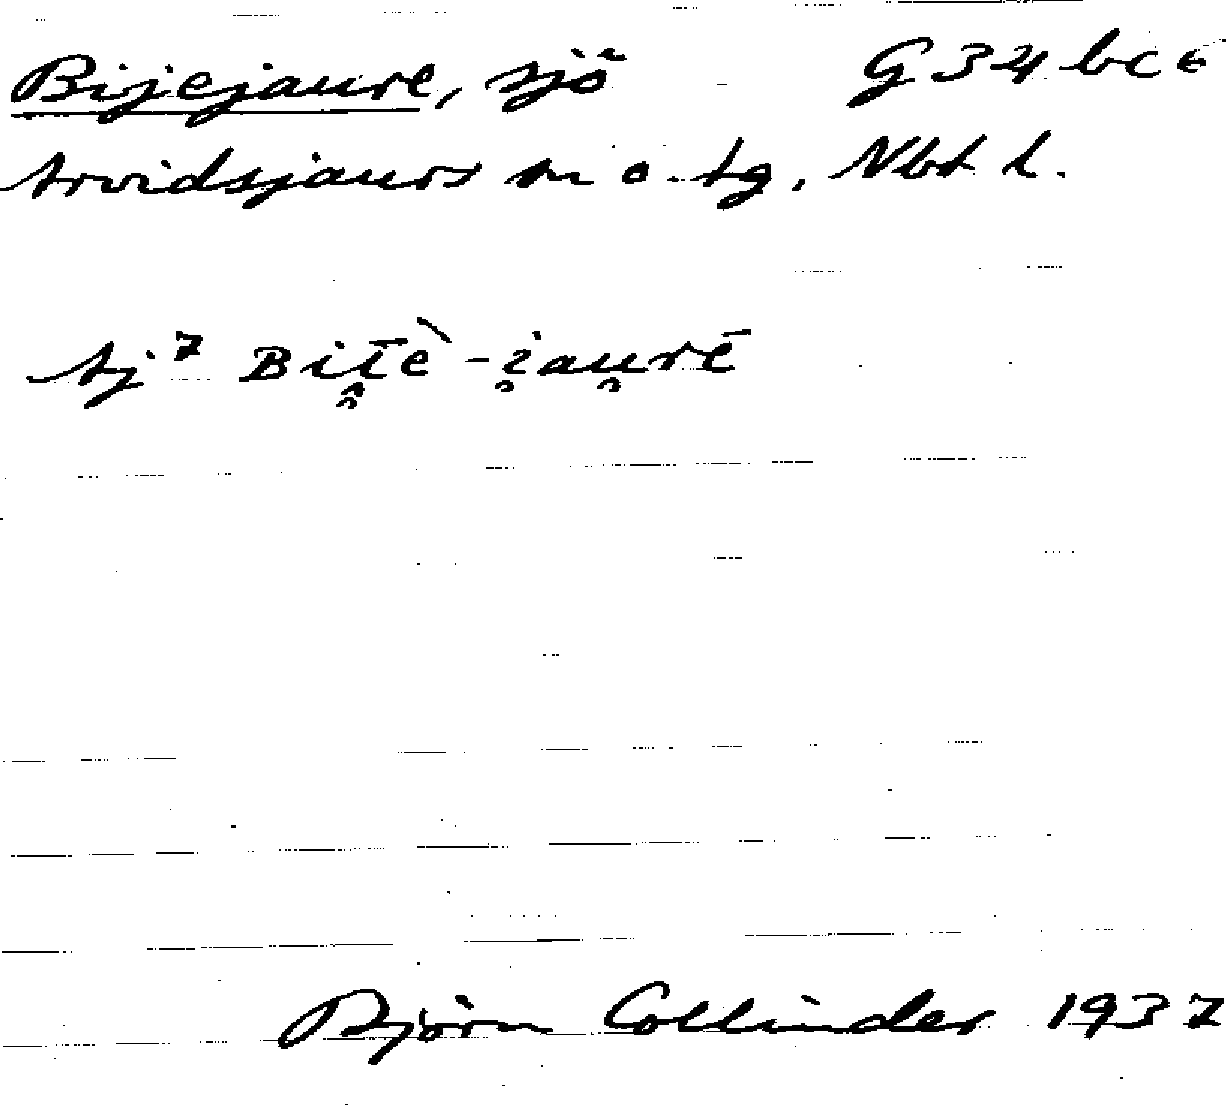 Bijejaure, sjö G34bc6
Arvidsjaurs sn o. tg, Nbt l.
Aj⁷ Bi̯īè-i̯au̯rē
Björn Collinder 1937